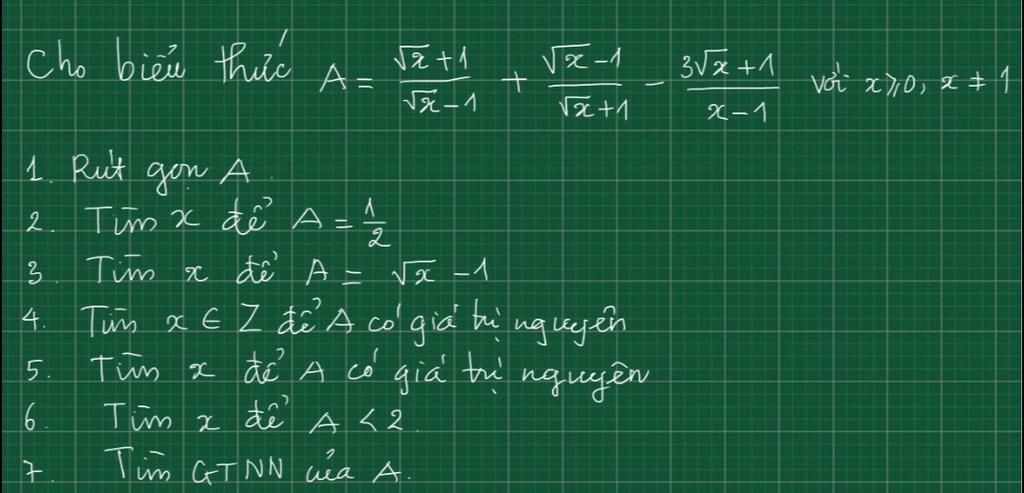 Cho biểu thức A = \frac{\sqrt{x}+1}{\sqrt{x}-1} + \frac{\sqrt{x}-1}{\sqrt{x}+1} - \frac{3\sqrt{x}+1}{x-1} với x ⩾ 0, x ≠ 1
1. Rút gọn A.
2. Tìm x để A = \frac{1}{2}
3. Tìm x để A = \sqrt{x} - 1
4. Tìm x ∈ Z để A có giá trị nguyên
5. Tìm x để A có giá trị nguyên
6. Tìm x để A < 2.
7. Tìm GTNN của A.